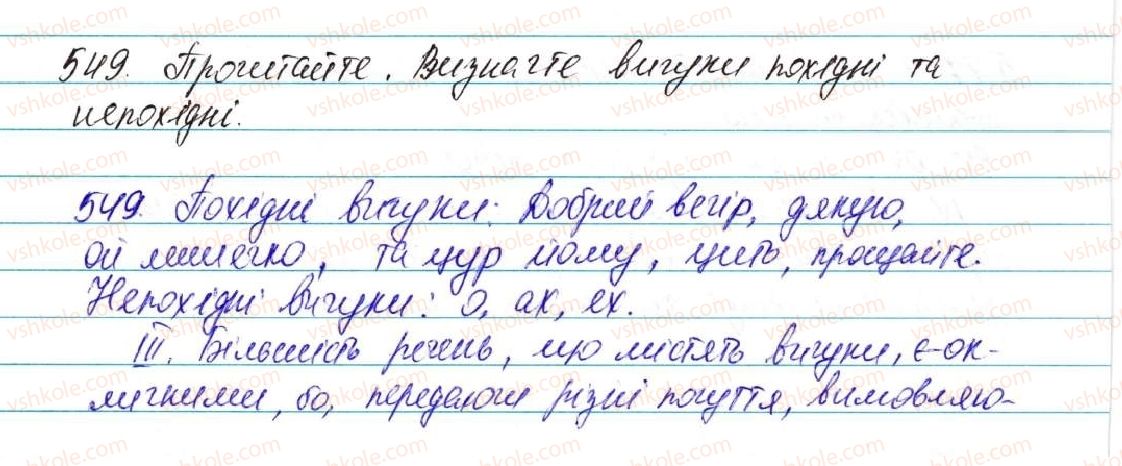 549. Прочитайте. Визначте вигуки похідні та
непохідні.
549. Похідні вигуки: Добрий вечір, дякую,
ой лишечко, та цур йому, цить, прощайте.
Непохідні вигуки: о, ах, ех.
III. Більшість речень, що містять вигуки, є ок-
личними, бо, передаючи різні почуття, вимовляю-